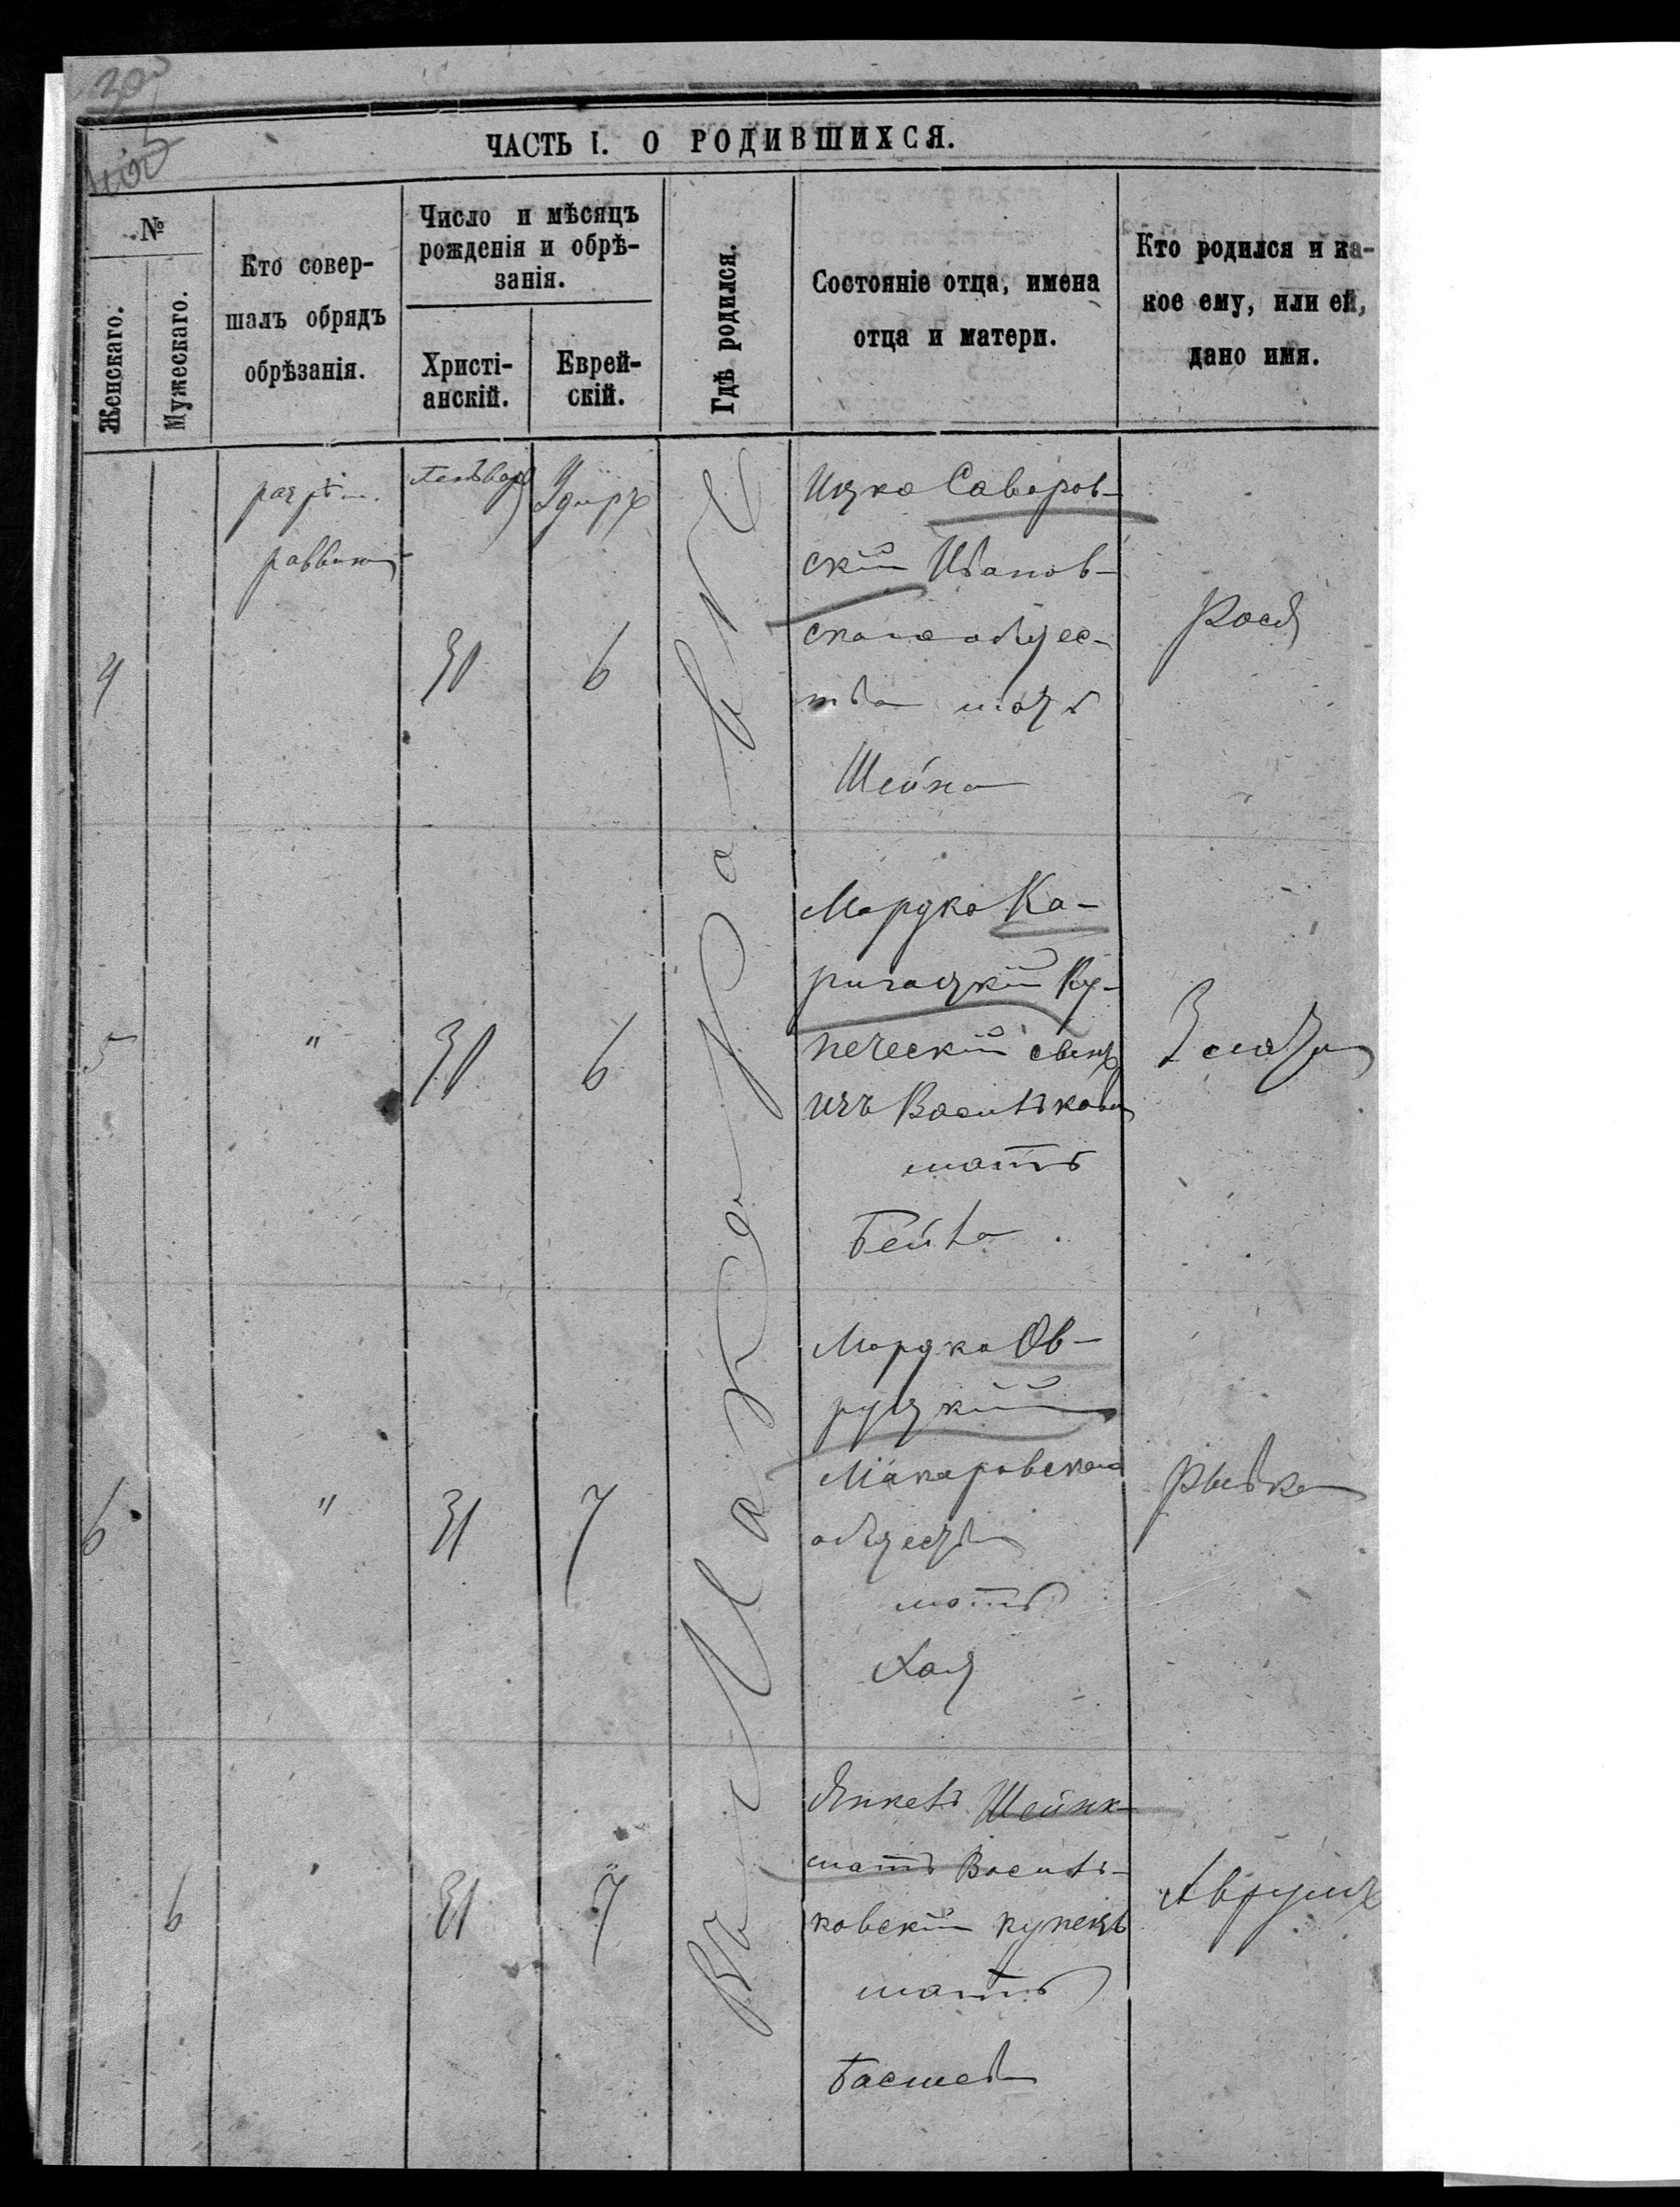 ЧАСТЬ I. О РОДИВШИХСЯ.
№
Женскаго.
Мужескаго.
Кто совер-
шалъ обрядъ
обрѣзанія.
Число и мѣсяцъ
рожденія и обрѣ-
занія.
Христі-
анскій.
Еврей-
скій.
Гдѣ родился.
Состояніе отца, имена
отца и матери.
Кто родился и ка-
кое ему, или ей,
дано имя.
Въ Макаровѣ
4
раввинъ
31
6
Ицко Саваров-
скій Иванов-
скаго общес-
тва мать
Шейна
Рося
5
"
31
6
Мордко Ка-
гацкій Ку-
печескій сынъ
изъ Василькова
мать
Бейла
Злата
6
"
31
7
Мордко Ов-
руцкій
Макаровскаго
общества
мать
Хая
Рывка
6
31
7
Янкель Шейнк-
манъ Василь-
ковскій купецъ
мать
Басшева
Аврумъ